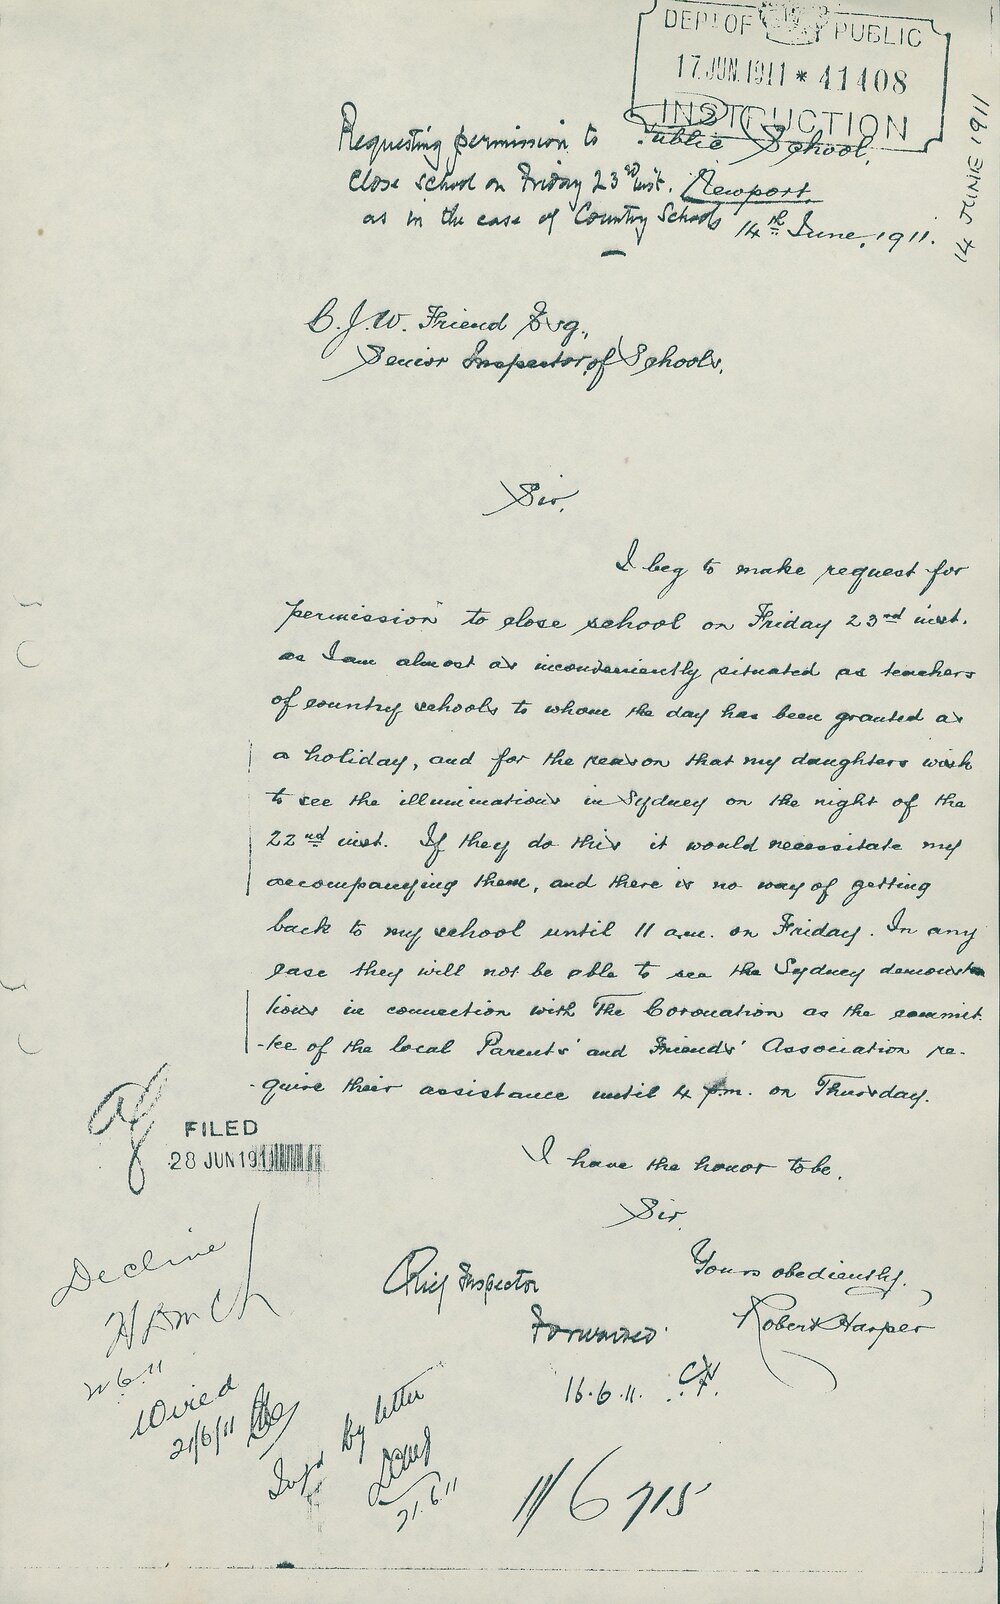 DEPT OF PUBLIC
17 JUN. 1911 * 41408
INSTRUCTION
14 JUNE 1911
Requesting permission to
close school on Friday 23rd inst.
as in the case of Country Schools
Public School,
Newport,
14th June, 1911.
C. J. W. Friend Esq.,
Senior Inspector of Schools,
Sir,
I beg to make request for
permission to close school on Friday 23rd inst.
as I am almost as inconveniently situated as teachers
of country schools to whom the day has been granted as
a holiday, and for the reason that my daughters wish
to see the illuminations in Sydney on the night of the
22nd inst. If they do this it would necessitate my
accompanying them, and there is no way of getting
back to my school until 11 a.m. on Friday. In any
case they will not be able to see the Sydney demonstra
tions in connection with The Coronation as the commit
-tee of the local Parents' and Friends' Association re-
-quire their assistance until 4 p.m. on Thursday.
I have the honor to be,
Sir,
Yours obediently,
Robert Harper
Chief Inspector
Forwarded
16.6.11.
FILED
28 JUN 1911
Decline
Wired
21/6/11
by letter
21.6.11
11/6715